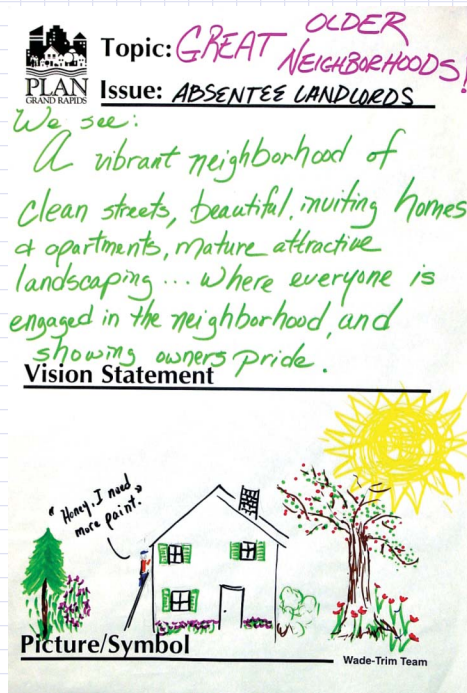 PLAN
GRAND RAPIDS
Topic: GREAT OLDER
NEIGHBORHOODS!
Issue: ABSENTEE LANDLORDS
We see:
A vibrant neighborhood of
clean streets, beautiful, inviting homes
& apartments, mature attractive
landscaping ... where everyone is
engaged in the neighborhood, and
showing owners pride.
Vision Statement
"Honey, I need
more paint."
Picture/Symbol
Wade-Trim Team